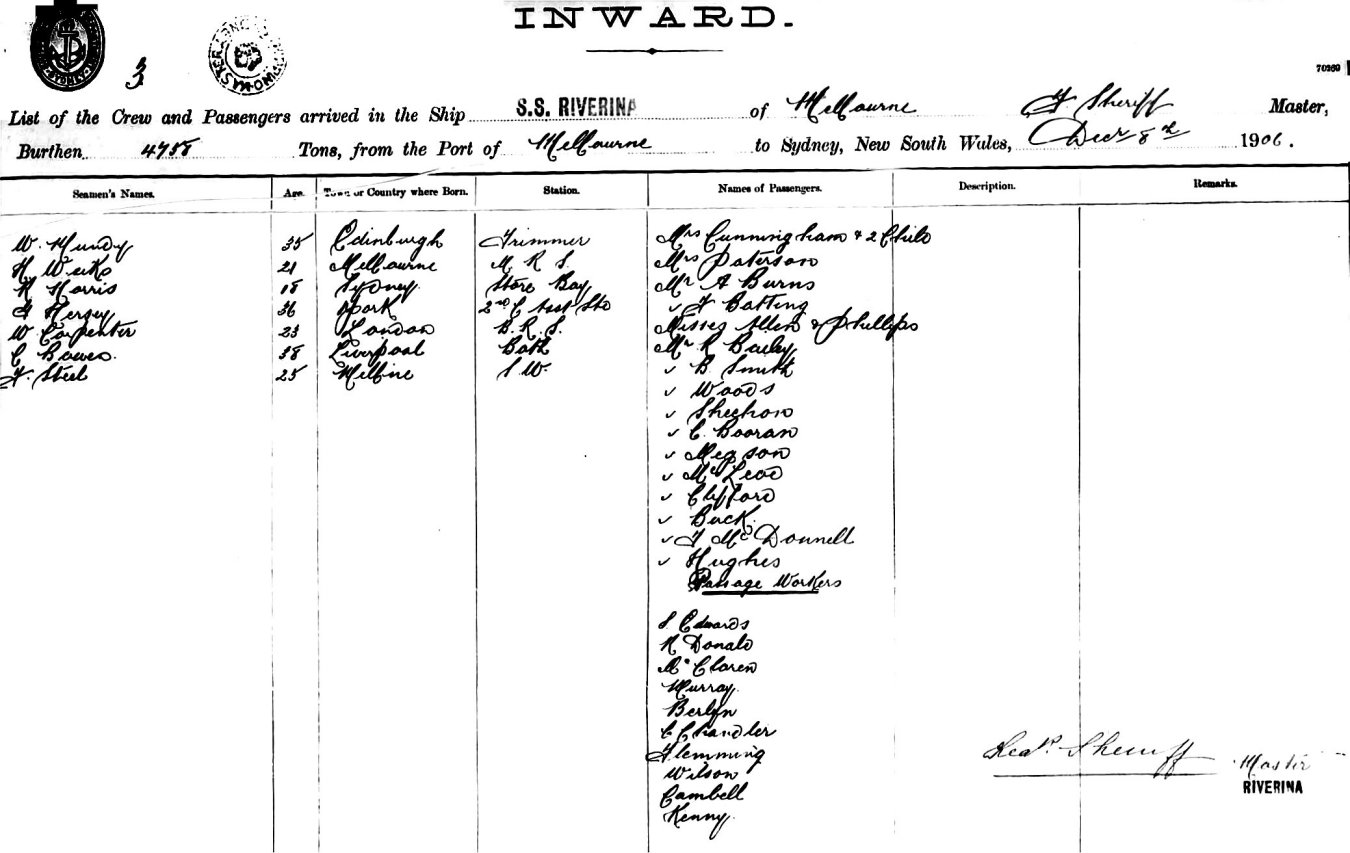 INWARD.
SYDNEY
3
70269
List of the Crew and Passengers arrived in the Ship S.S. RIVERINA of Melbourne F. Sheriff Master,
Burthen 4758 Tons, from the Port of Melbourne to Sydney, New South Wales, Decr 8th 1906.
Seamen's Names. Age. Town or Country where Born. Station. Names of Passengers. Description. Remarks.
W. Mundy 35 Edinburgh Trimmer Mrs Cunningham & 2 Child
H 21 Melbourne M. R. S. Mrs Paterson
Harris 18 Sydney Store Boy Mr A Burns
Hersey 36 York 2nd C asst Std ✓ Batting
W Carpenter 23 London B. R. S. Misses Allen & Phillips
C 38 Liverpool Bath Mr R Bailey
F. Steel 25 Melbne S W. ✓ B. Smith
✓ Woods
✓ Sheehan
✓ C. Booran
✓ Megson
✓ McLeod
✓ Clifford
✓ Buck
✓ McDonnell
✓ Hughes
Passage Workers
S. Edwards
Donald
McClaren
Murray
Berlyn
C Chandler
Flemming
Wilson
Cambell
Kenny
Sheriff Master
RIVERINA